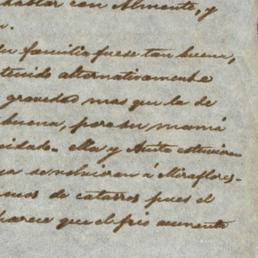 hablar con Almonte, y
su familia fuese tan buena,
alternativamente
gravedad mas que la de
buena, pero su mamá
ella y Anita estuvieron
se volvieron á Miraflores-
de catarros pues el
parece que el frio aumenta